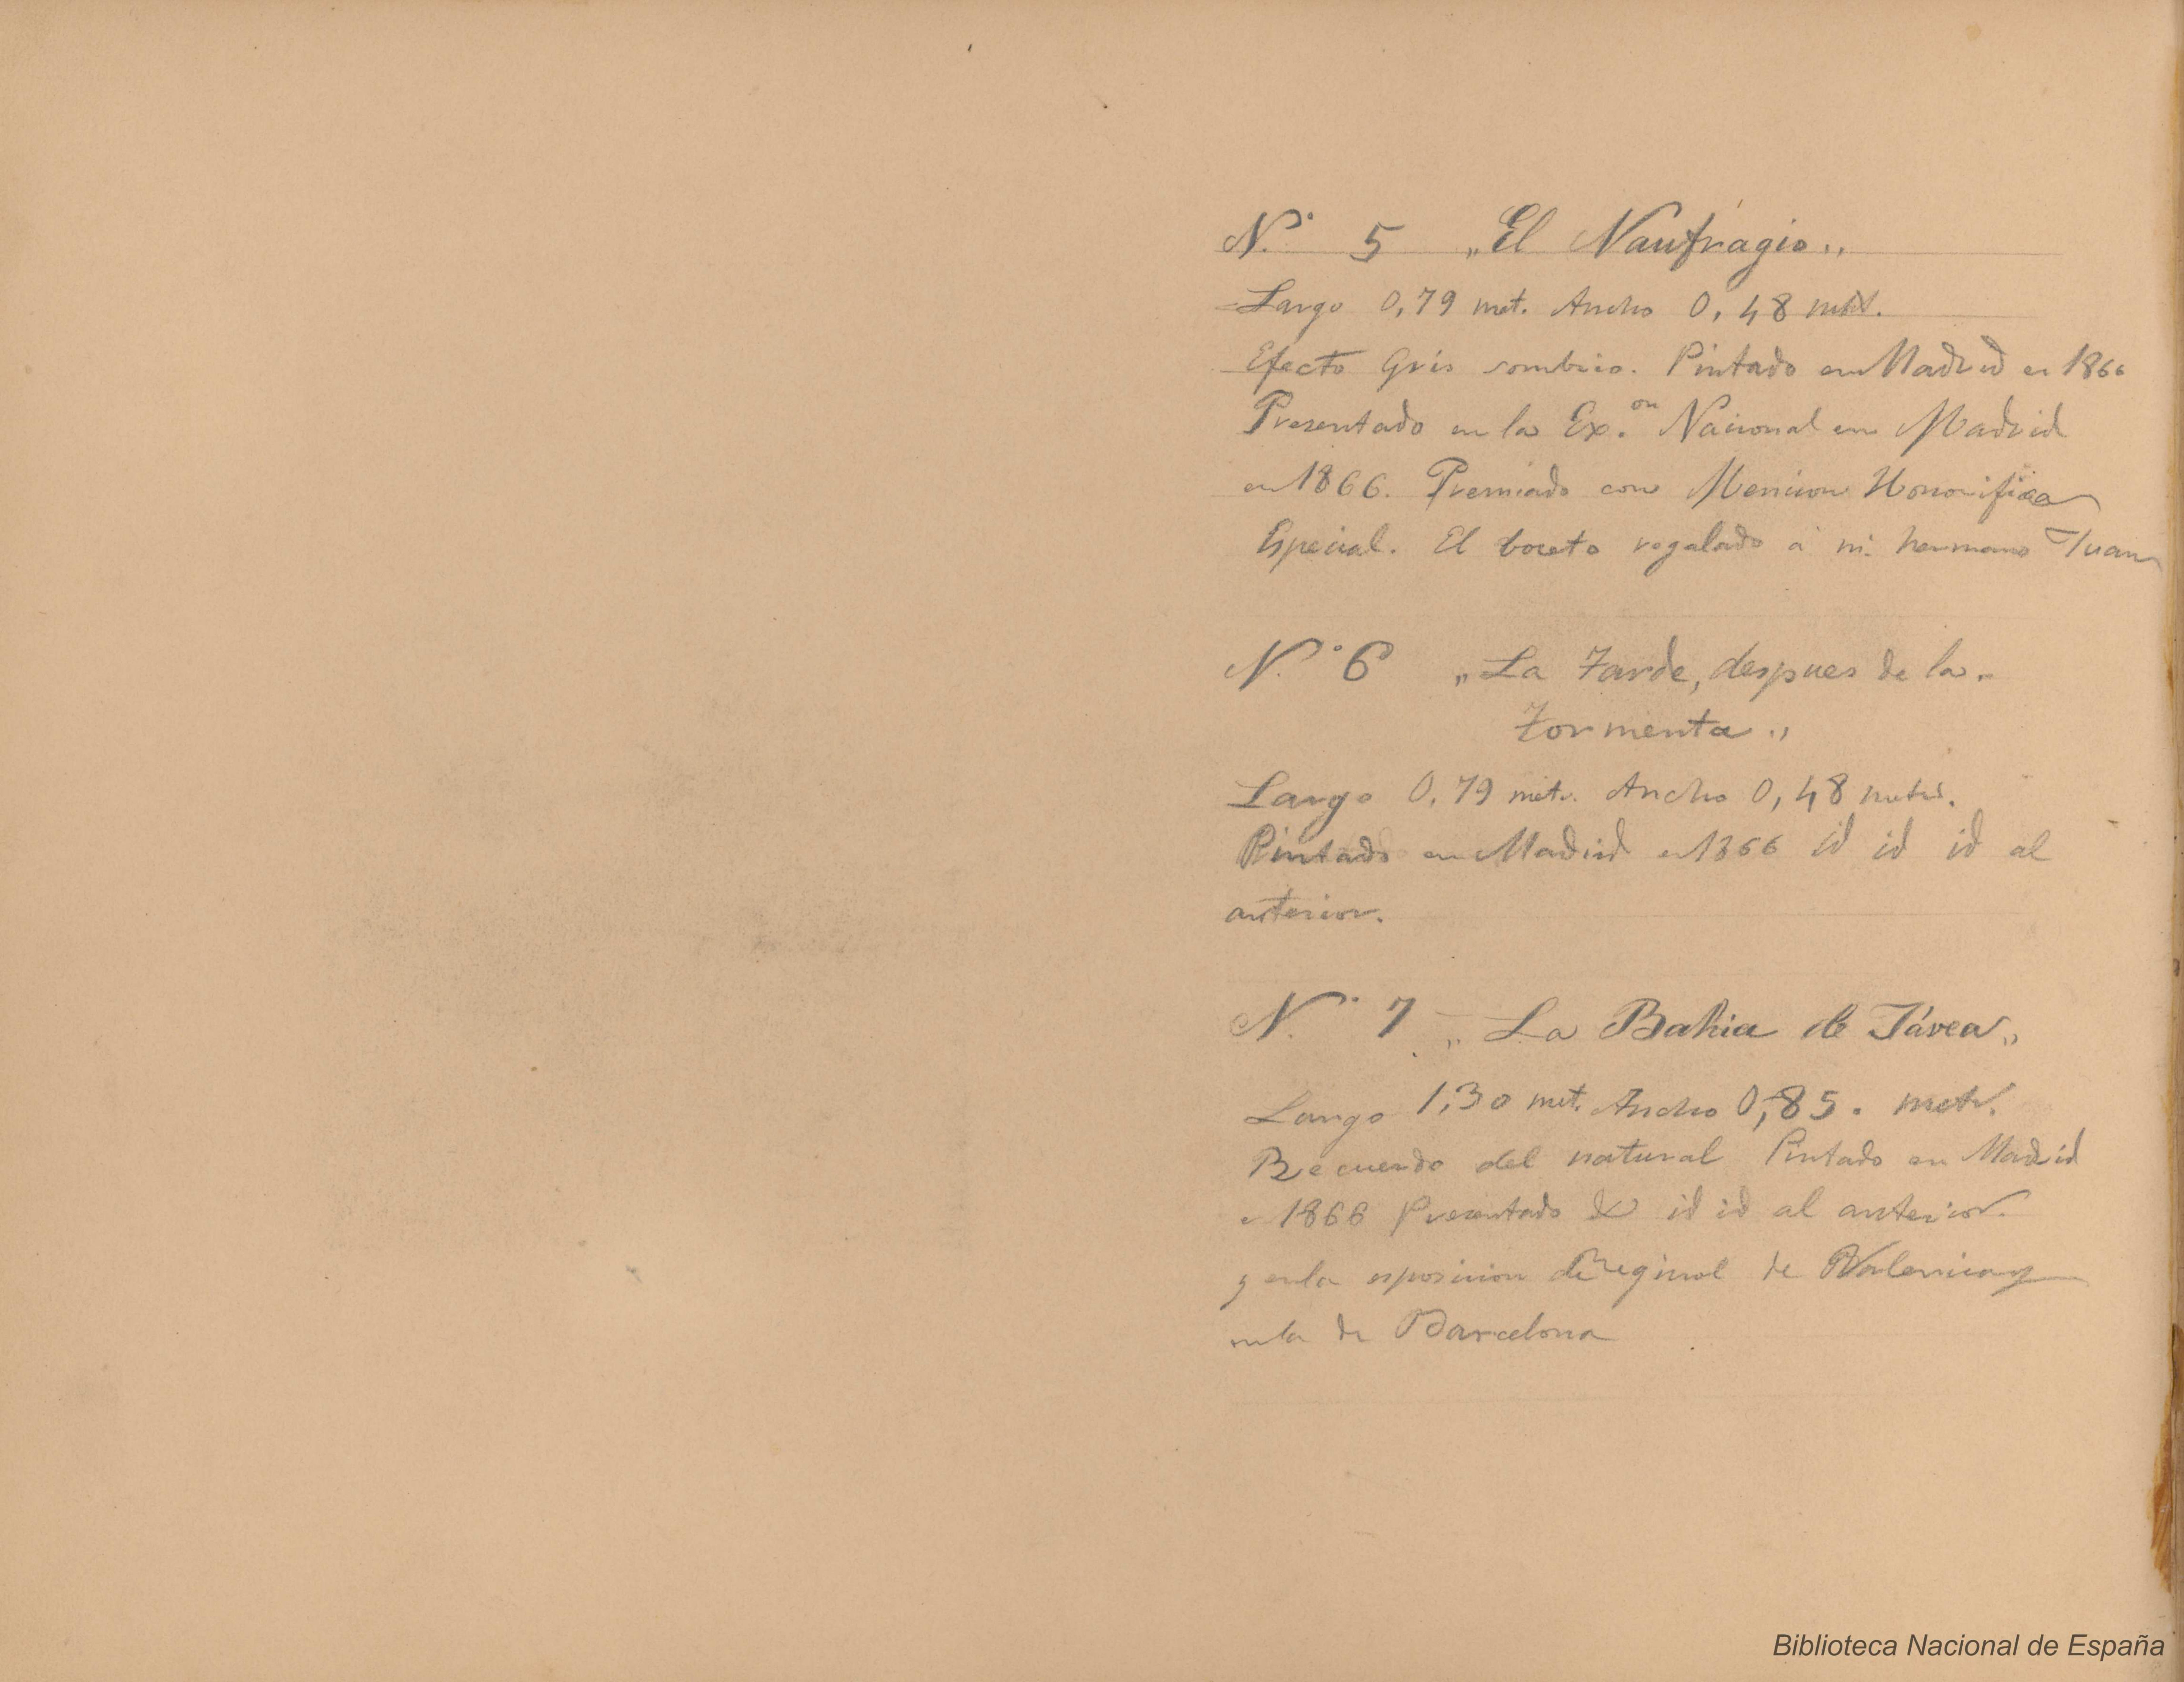 N.º 5 „El Naufrágio„
Largo 0,79 met. Ancho 0,48 met.
Efecto Gris sombrio. Pintado en Madrid en 1866
Presentado en la Ex.on Nacional en Madrid
en 1866. Premiado con Mencion Honorifica
Especial. El boceto regalado á mi hermano Juan
N.º 6 „La Tarde, despues de la
tormenta„
Largo 0,79 metr. Ancho 0,48 metrs.
Pintado en Madrid en 1866 id id id al
anterior.
N.º 7 „La Bahia de Jávea„
Largo 1,30 met. Ancho 0,85. metr.
Recuerdo del natural Pintado en Madrid
en 1866 Presentado & id id al anterior.
y en la esposicion Reginal de Valencia y
en la de Barcelona
Biblioteca Nacional de España